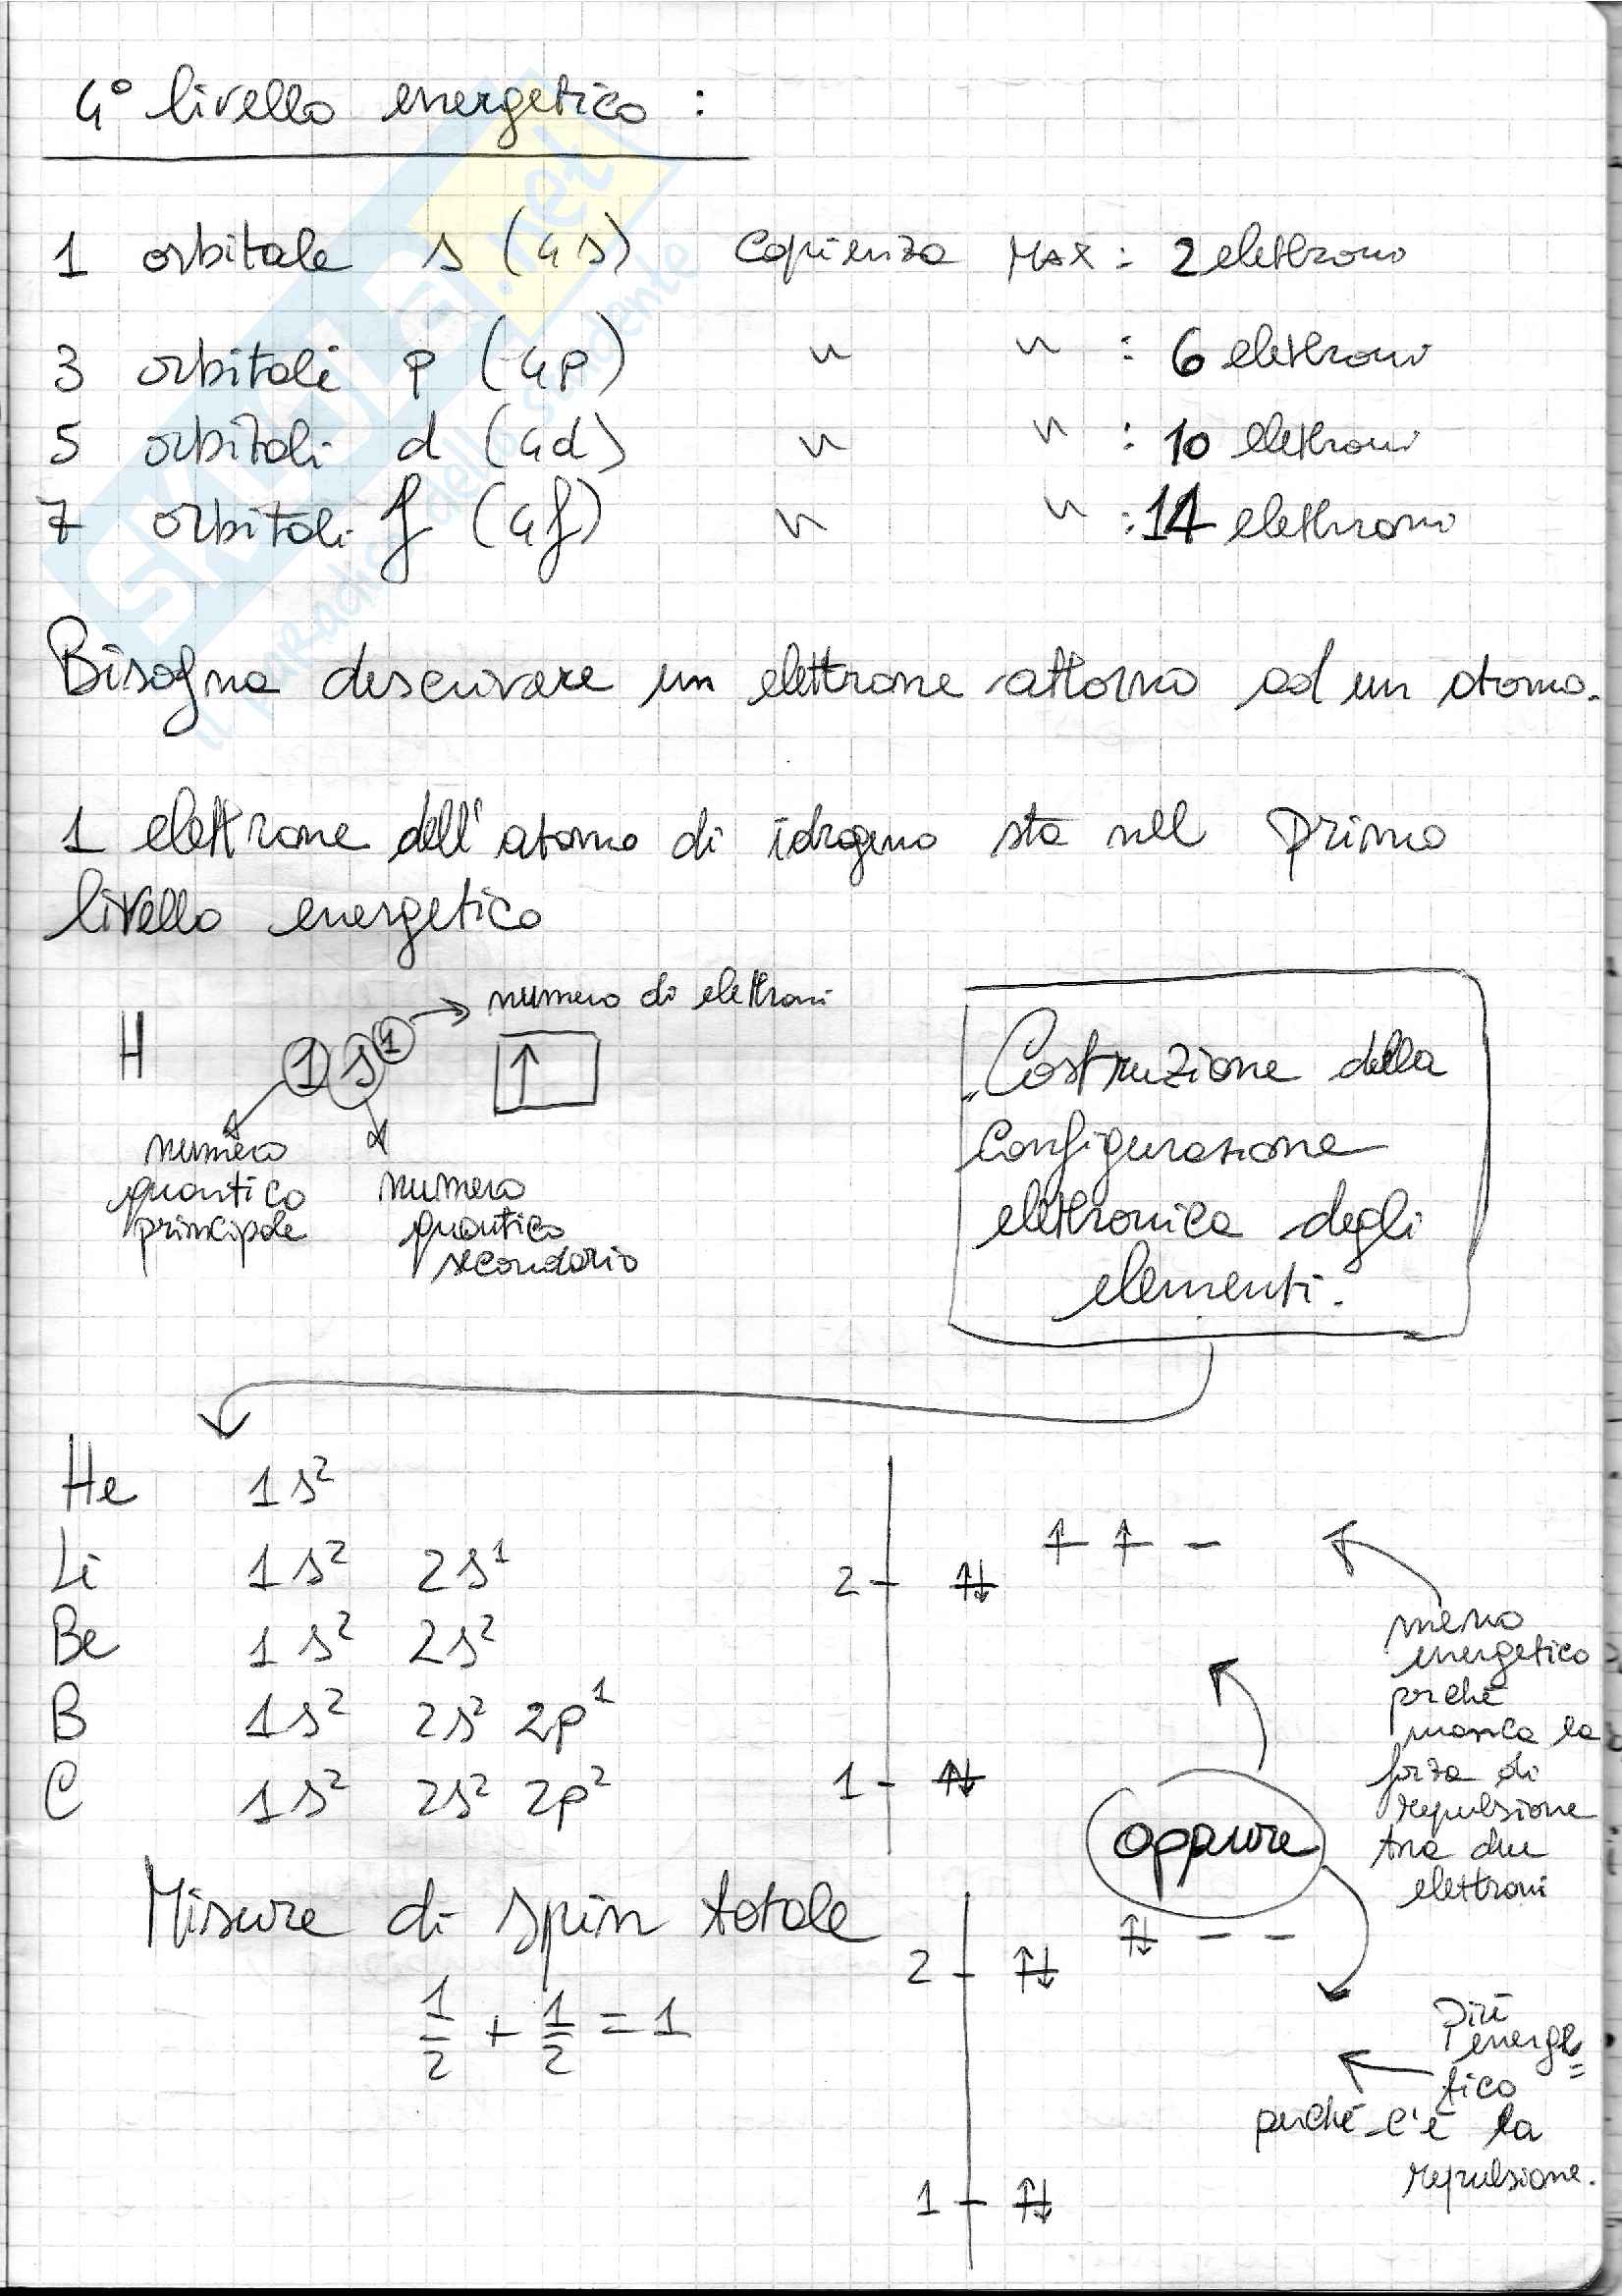 4° livello energetico :
1 orbitale s (4s) Capienza MAX : 2 elettroni
3 orbitali p (4p) " " : 6 elettroni
5 orbitali d (4d) " " : 10 elettroni
7 orbitali f (4f) " " : 14 elettroni
Bisogna descrivere un elettrone attorno ad un atomo.
1 elettrone dell'atomo di idrogeno sta nel primo
livello energetico
H 1 s 1 → numero di elettroni
↑
numero
quantico
principale
numero
quantico
secondario
Costruzione della
configurazione
elettronica degli
elementi.
He 1s²
Li 1s² 2s¹
Be 1s² 2s²
B 1s² 2s² 2p¹
C 1s² 2s² 2p²
↑ ↑ –
2 ↑↓
1 ↑↓
meno
energetico
perché
manca la
forza di
repulsione
tra due
elettroni
oppure
Misure di spin totale
1/2 + 1/2 = 1
↑↓ – –
2 ↑↓
1 ↑↓
più
energe=
tico
perché c'è la
repulsione.
SKUOLA.net
il paradiso dello studente